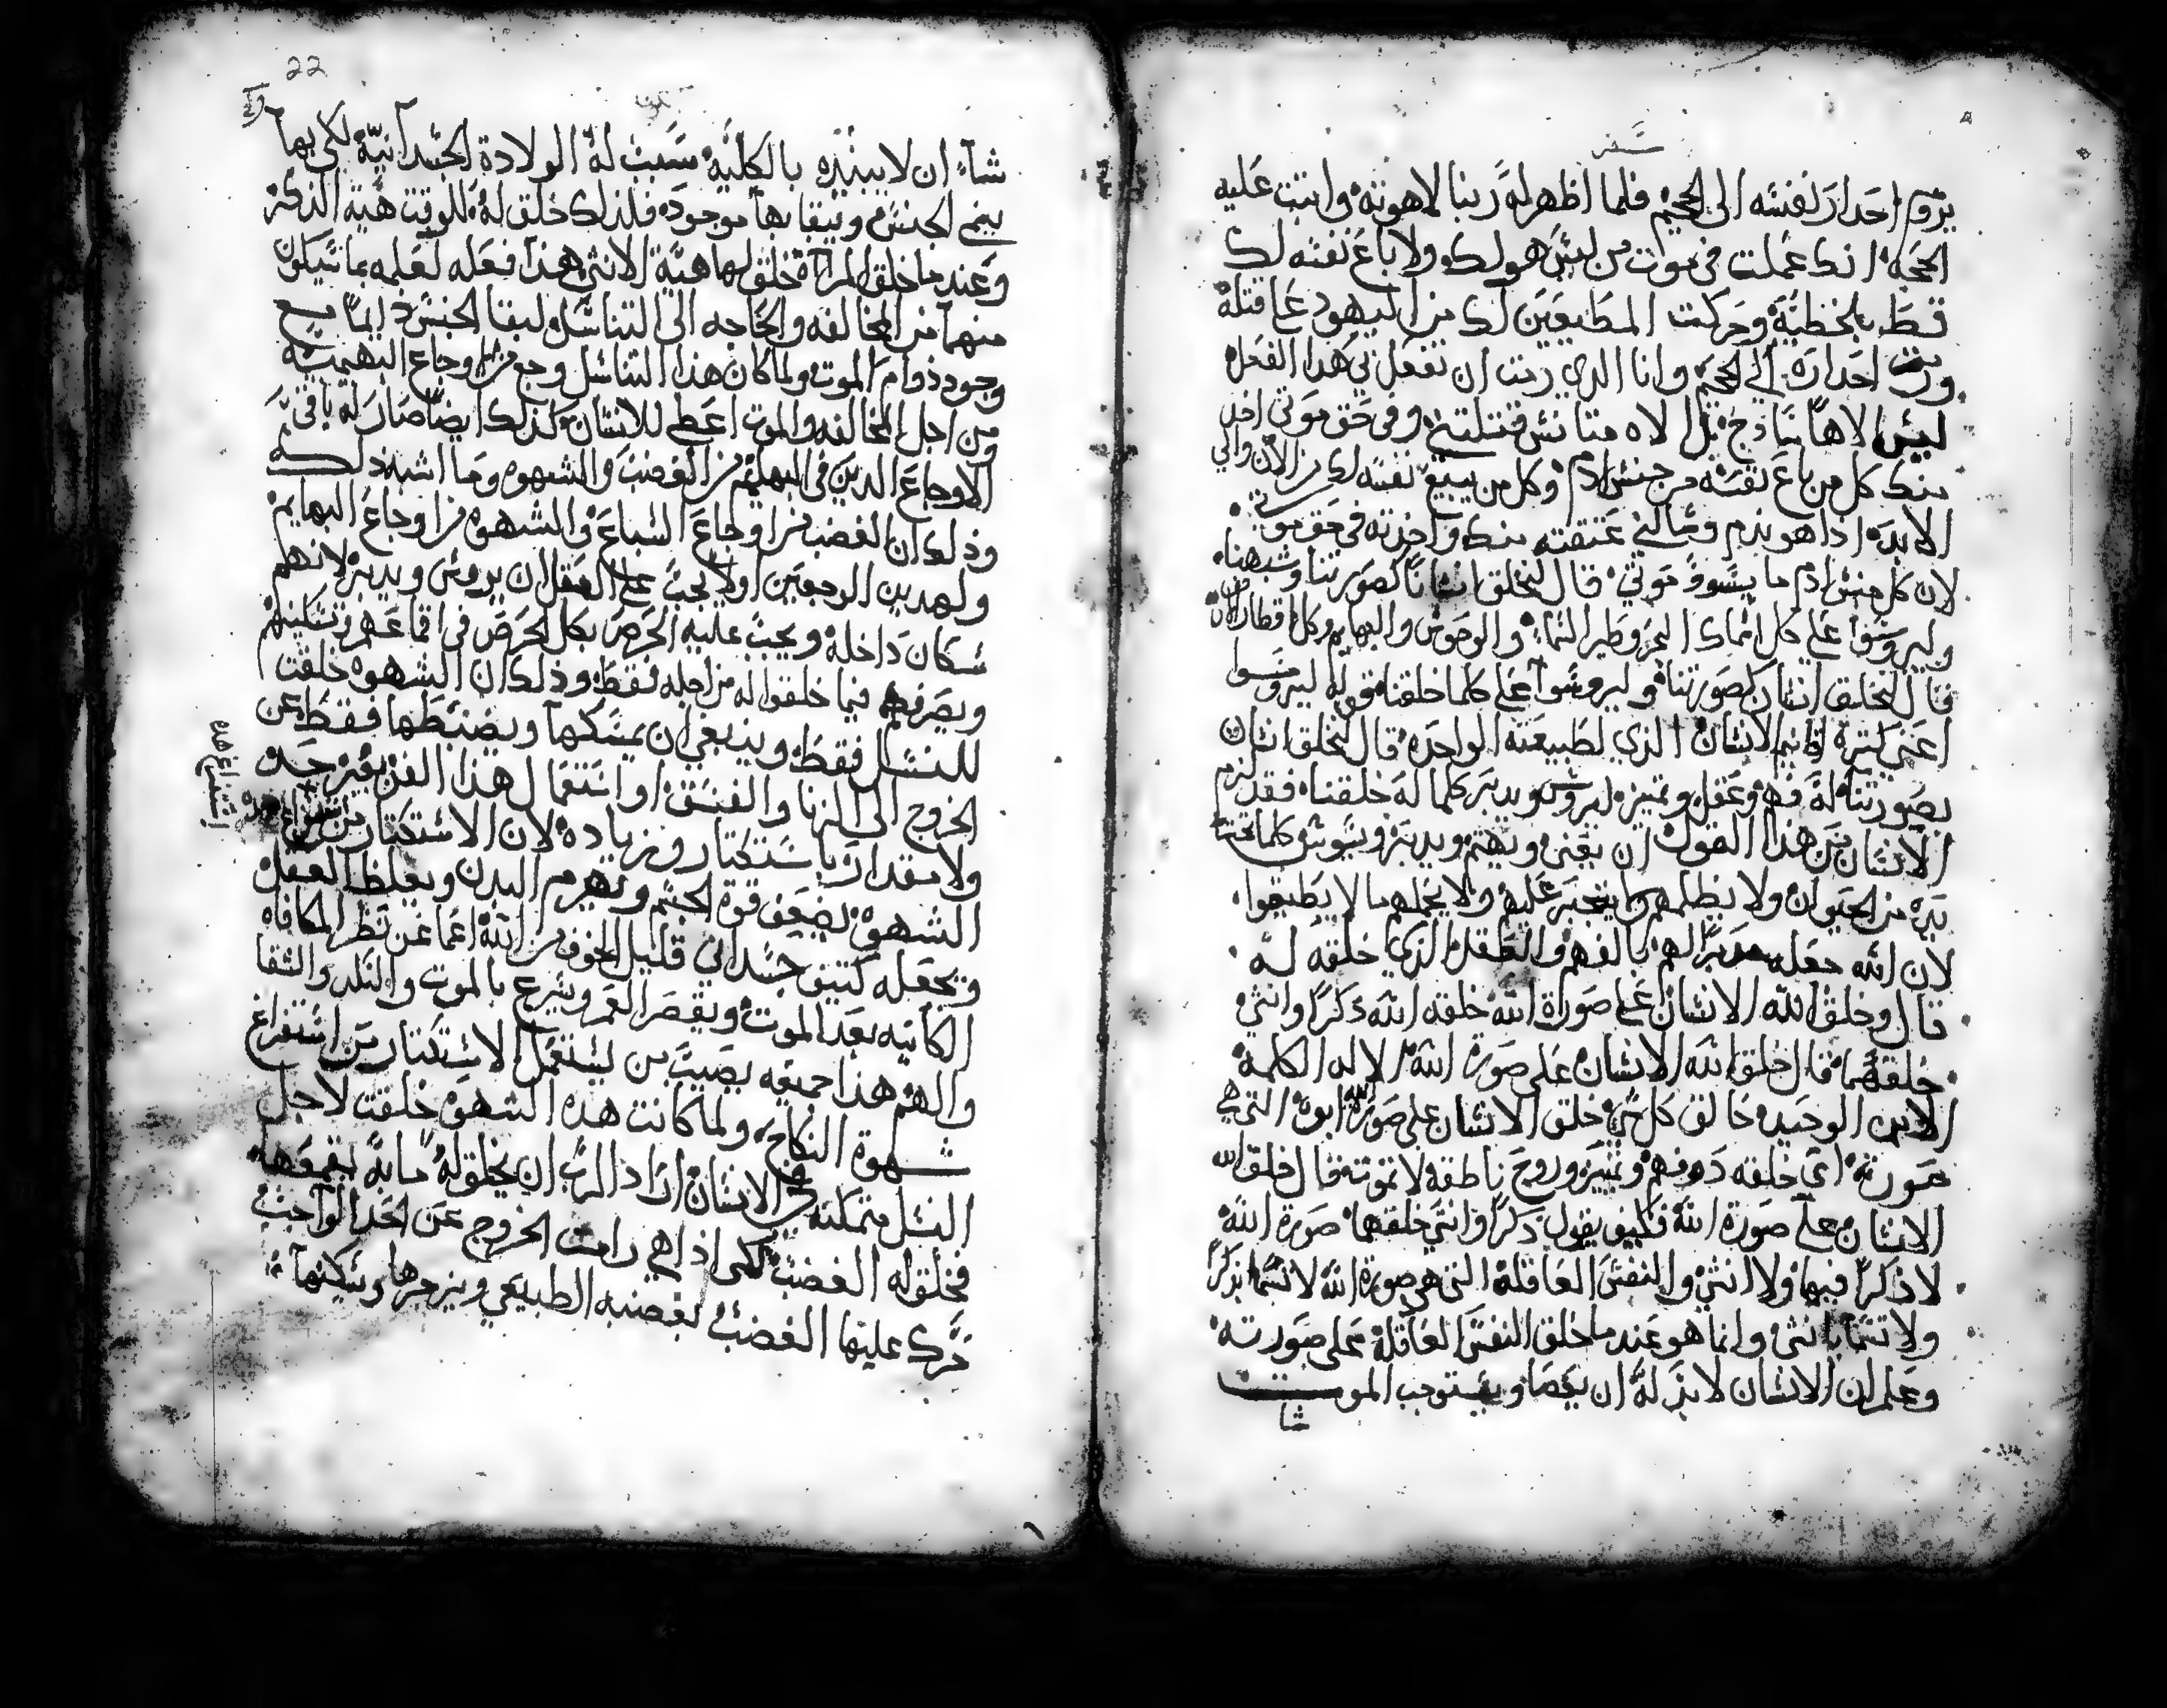 سفر
يروم احدار نفسه الى الجحيم فلما اظهر له ربنا لاهوته واثبت عليه
الحجه انك عملت في موت من ليس هو لك ولا باع نفسه لك
قط بالخطية وحركت المطيعين لك من اليهود على قتله
ورمت احداره الي الجحيم وانا الذي رمت ان تفعل بي هذا الفعل
ليس الاهًا ساذج بل الاه متانس فقتلتني وفي حق موتي اخد
منك كل من باع نفسه من جنس ادم وكل من يبيع نفسه لك من الان والي
الابد اذا هو ندم وسالني عتقته منك واخدته في حق موتي
لان كل جنس ادم ما يسوى موتي قال لنخلق انسانًا كصورتنا وشبهنا
وليروسوا على كل اسماك البحر وطير السماء والوحوش والبهايم وكل اقطار الارض
قال لنخلق انسان كصورتنا وليروسوا على كلما خلقنا قوله ليروسوا
اعني كثرة اقانيم الانسان الذي لطبيعته الواحده قال لنخلق انسان
بصورتنا له فهم وعقل وتمييز ليروس ويدبر كلما له خلقنا فقد لزم
الانسان من هذا القول ان يعتني ويهتم ويدبر ويسوس كلما تحت
يده من الحيوان ولا يظلمهم ولا يتجبر عليهم ولا يحملهم ما لا يطيقوا
لان الله جعله مدبرًا لهم بالفهم والعقل الذي خلقه له
قال وخلق الله الانسان على صوراة الله خلقه الله ذكرًا وانثي
خلقهما قال خلق الله الانسان على صورة الله الاله الكلمة
الابن الوحيد خالق كل شي خلق الانسان على صورة الله ابوه التي هي
صورته اي خلقه ذو فهم وتمييز وروح ناطقه لا تموت قال خلق الله
الانسان على صورة الله فكيف يقول ذكرًا وانثي خلقهما صورة الله
لا ذكرًا فيها ولا انثي والنفس العاقلة التي هي صورة الله لا تسما بذكرًا
ولا تسما بانثي وانما هو عند ما خلق النفس العاقلة على صورته
وعلم ان الانسان لا بد له ان يعصا ويستوجب الموت
شا
22
شاء ان لا يبيده بالكلية سبب له الولادة الجسدانية لكى بها
ينمي الجنس ويبقا بها موجود فلذلك خلق له للوقت هية الذكر
وعند ما خلق المراة خلق لها هية الانثي هذا فعله لعلمه بما سيكون
منهما من المخالفه والحاجه الى التناسل وليقا الجنس دايمًا مع
وجود دوام الموت ولما كان هذا التناسل وجع من اوجاع البهيمية
ومن اجل المخالفه والموت اعطي للانسان كذلك ايضًا صار له باقي
الاوجاع الدين في البهايم من الغضب والشهوه وما اشبه ذلك
وذلك ان الغضب من اوجاع السباع والشهوه من اوجاع البهايم
ولهدين الوجعين اولا يجب على العقل ان يروس ويدبر لانهم
سكان داخله ويجب عليه الحرص بكل الحرص في اقماعهم وتسكينهم
ويصرفهم فيما خلقوا له من اجله فقط وذلك ان الشهوه خلقت
للنسل فقط وينبغي ان يمسكها ويضبطها فقط عن
الخروج الى الزنا والفسق او استعمال هذا الفن بغير حد
ولا مقدار باستكثار وزياده لان الاستكثار من استفراغ هذه
الشهوة يضعف قوة الجسم ويهرم البدن ويغلظ العقل
ويجعله كثيف جسداني قليل الخوف من الله اعما عن نظر المكافاه
الكاينه بعد الموت ويقصر العمر ويسرع بالموت والبلا والشقا
والهم هذا جميعه يصيب من يستعمل الاستكثار من استفراغ
شهوة النكاح ولما كانت هذه الشهوة خلقت لاجل
النسل متمكنه في الانسان اراد الرب ان يخلق له ما به يقمعها
فخلق له الغضب لكى اذا هي رامت الخروج عن الحد الواجب
حرك عليها الغضب بغضبه الطبيعي ويزجرها ويسكنها
استفراغ هذه